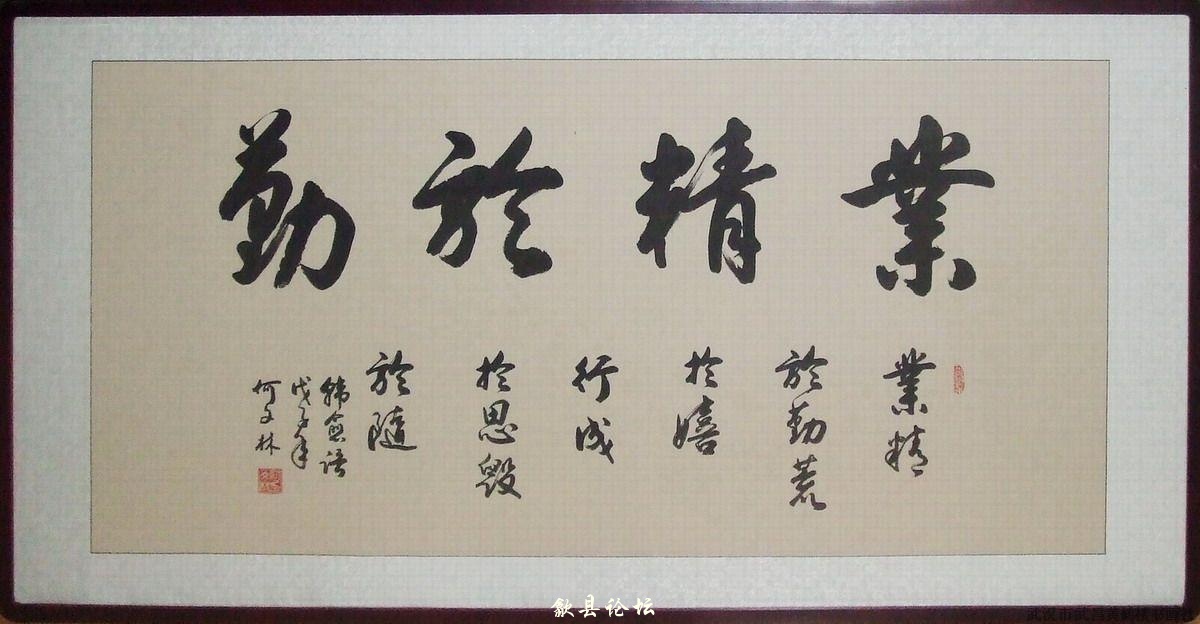 業精於勤
業精
於勤荒
於嬉
行成
於思毀
於隨
韓愈語
戊子年
何文林
歙县论坛